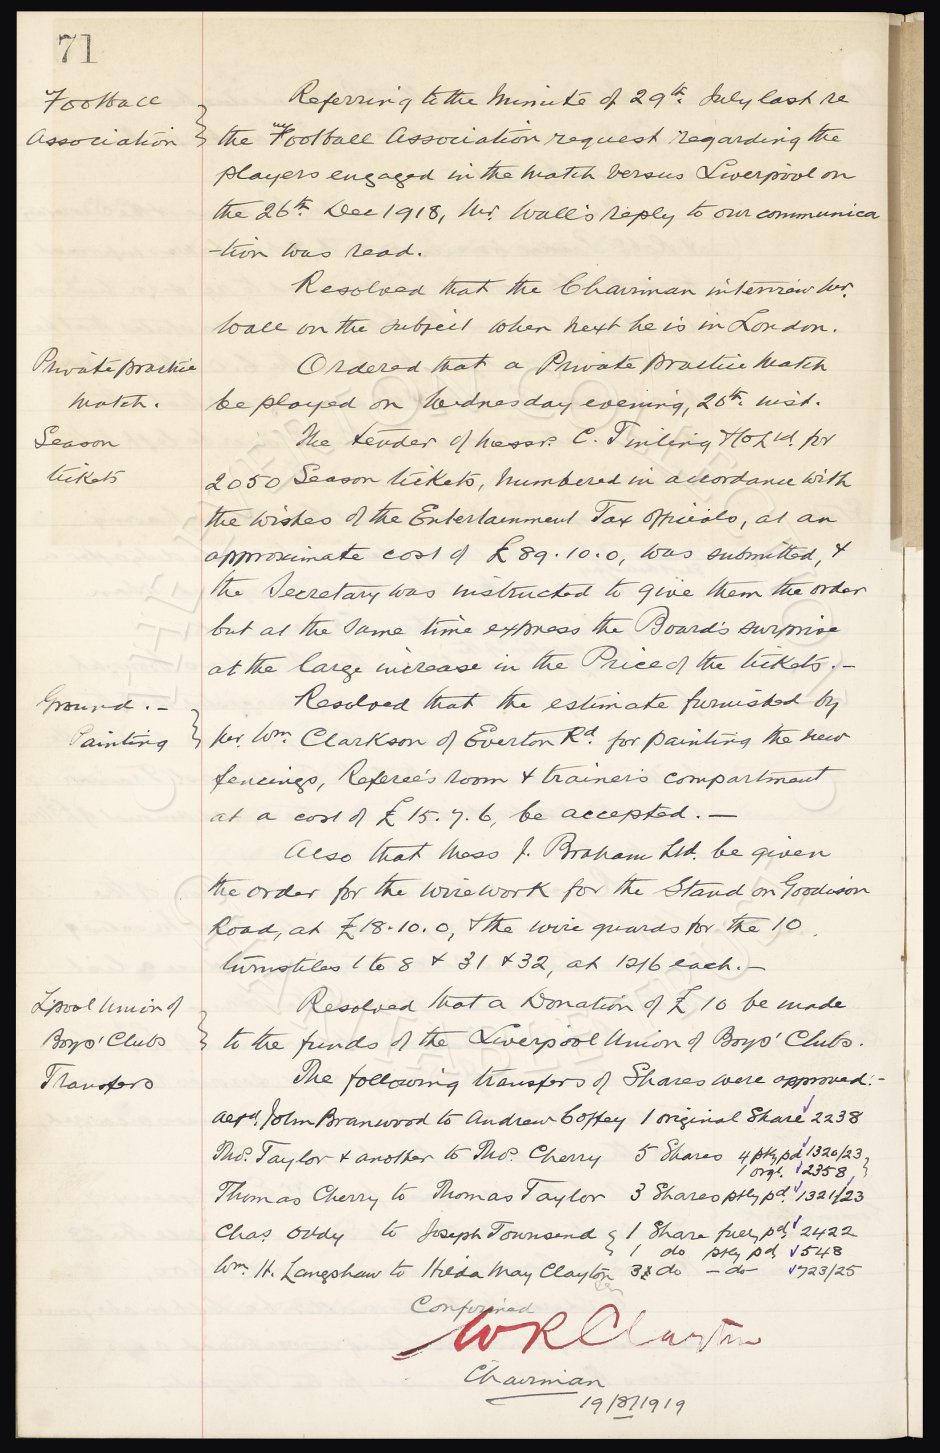 71
Football
Association
Referring to the Minute of 29th July last re
the Football Association request regarding the
players engaged in the match versus Liverpool on
the 26th Dec 1918, Mr. Wall's reply to our communica
-tion was read.
Resolved that the Chairman interview Mr.
Wall on the subject when next he is in London.
Private practice
match.
Ordered that a Private practice match
be played on Wednesday evening, 20th inst.
Season
tickets
The tender of Messrs. C. Tinling & Co Ltd. for
2050 Season tickets, numbered in accordance with
the wishes of the Entertainment Tax Officials, at an
approximate cost of £89.10.0, was submitted, &
the Secretary was instructed to give them the order
but at the same time express the Board's surprise
at the large increase in the Price of the tickets.-
Ground.-
Painting
Resolved that the estimate furnished by
Mr. Wm. Clarkson of Everton Rd. for painting the new
fencings, Referee's room & trainer's compartment
at a cost of £15.7.6, be accepted.—
Also that Mess J. Braham Ltd. be given
the order for the wirework for the Stand on Goodison
Road, at £18.10.0, & the wire guards for the 10
turnstiles 1 to 8 & 31 & 32, at 12/6 each.—
L'pool Union of
Boys' Clubs
Resolved that a Donation of £10 be made
to the funds of the Liverpool Union of Boys' Clubs.
Transfers
The following transfers of Shares were approved:-
John Branwood to Andrew Coffey 1 original Share 2238
Thos. Taylor & another to Thos. Cherry 5 Shares 4 ptly pd 1320/23
1 orgl. 2358
Thomas Cherry to Thomas Taylor 3 Shares ptly pd. 1321/23
Chas. Oddy to Joseph Townsend 1 Share fully pd 2422
1 do ptly pd 548
Wm. H. Langshaw to Hilda May Clayton 3 do - do - 723/25
Confirmed
W R Clayton
Chairman
19/8/1919